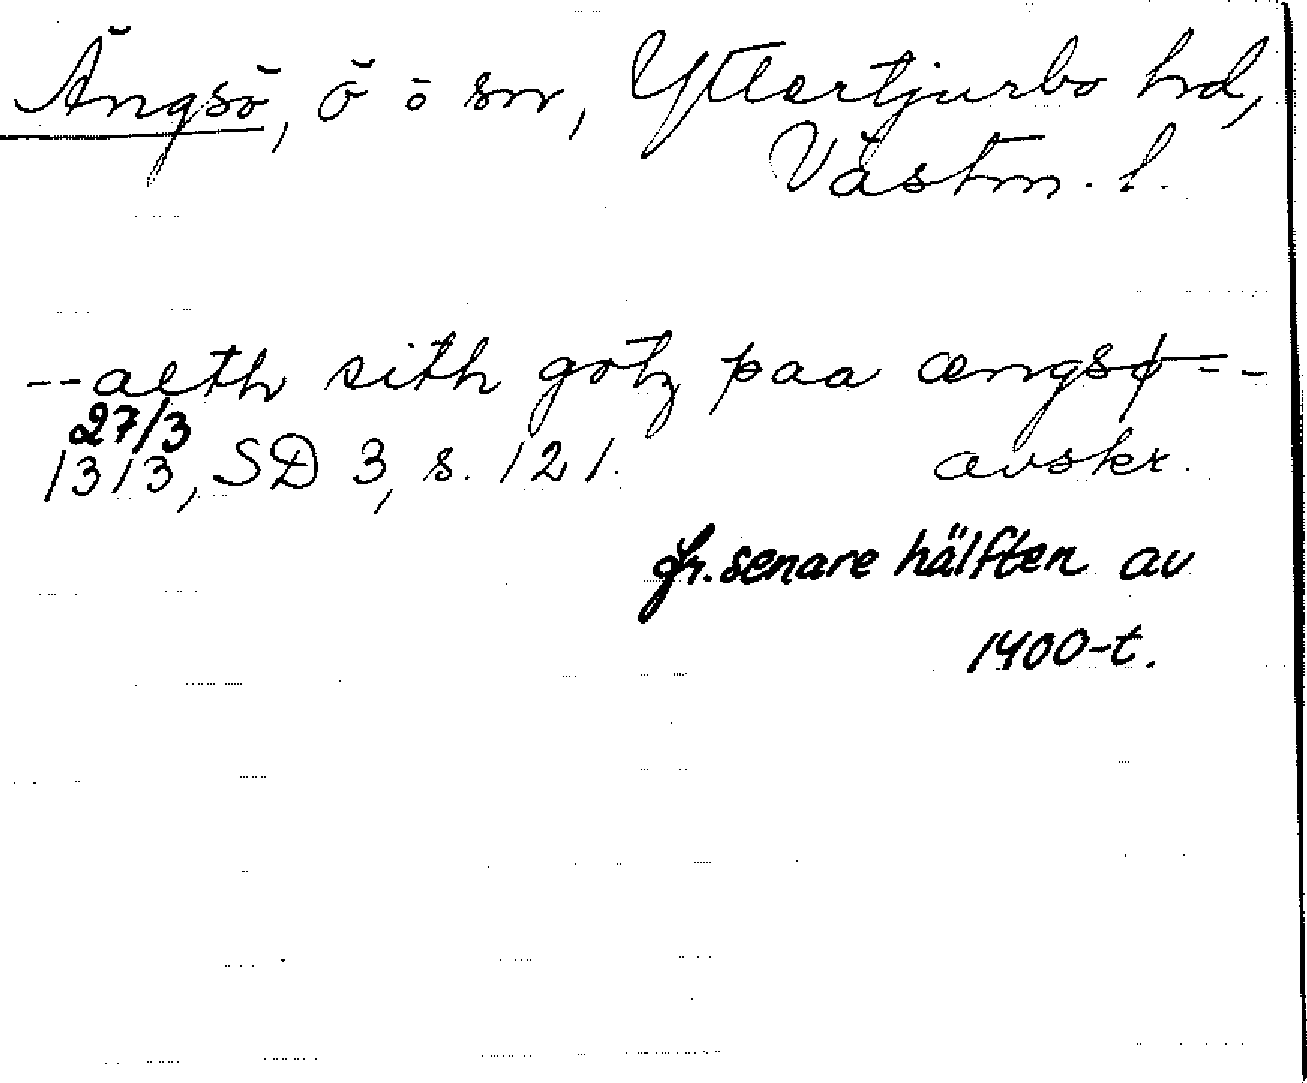 Ängsö, ö o sn, Yttertjurbo hd,
Västm. l.
--alth sith gotz paa ængsø--
27/3
1313, SD 3, s. 121. avskr.
fr. senare hälften av
1400-t.